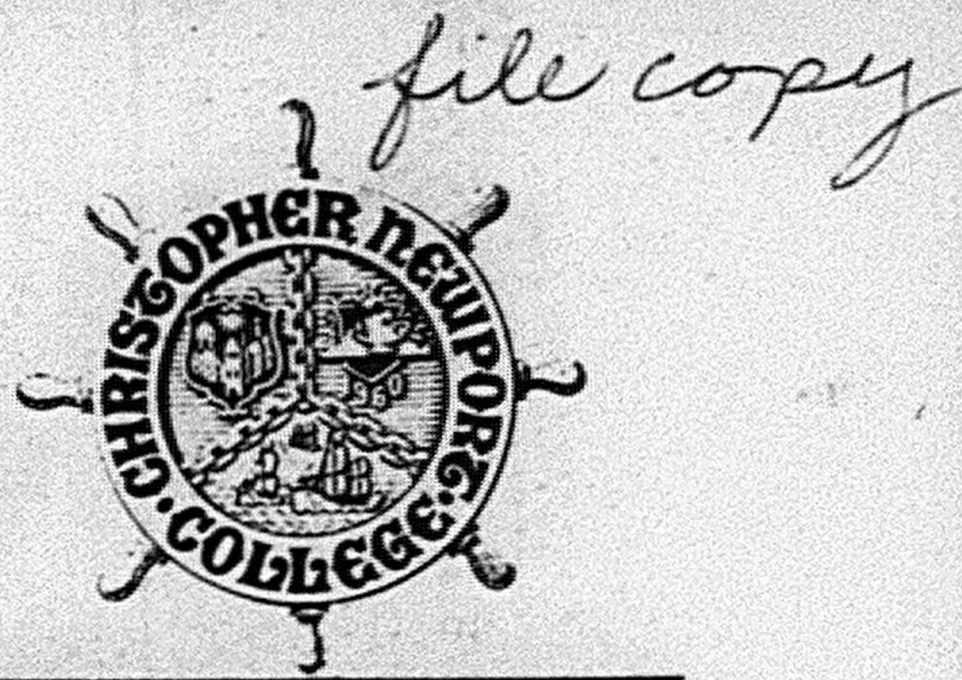 file copy
CHRISTOPHER NEWPORT
COLLEGE
1960